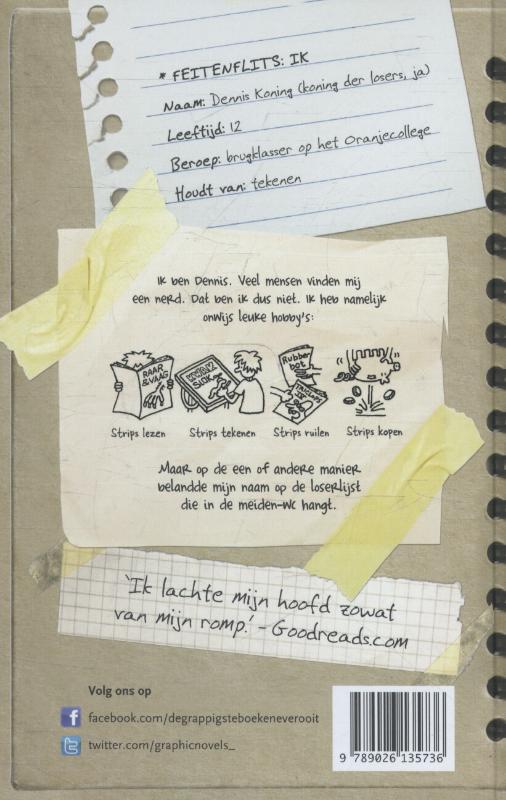 * FEITENFLITS: IK
Naam: Dennis Koning (koning der losers, ja)
Leeftijd: 12
Beroep: brugklasser op het Oranjecollege
Houdt van: tekenen
Ik ben Dennis. Veel mensen vinden mij
een nerd. Dat ben ik dus niet. Ik heb namelijk
onwijs leuke hobby's:
RAAR
&VAAG
Rubber
bot
Strips lezen
Strips tekenen
Strips ruilen
Strips kopen
Maar op de een of andere manier
belandde mijn naam op de loserlijst
die in de meiden-wc hangt.
'Ik lachte mijn hoofd zowat
van mijn romp.' - Goodreads.com
Volg ons op
facebook.com/degrappigsteboekeneverooit
twitter.com/graphicnovels_
9 789026 135736